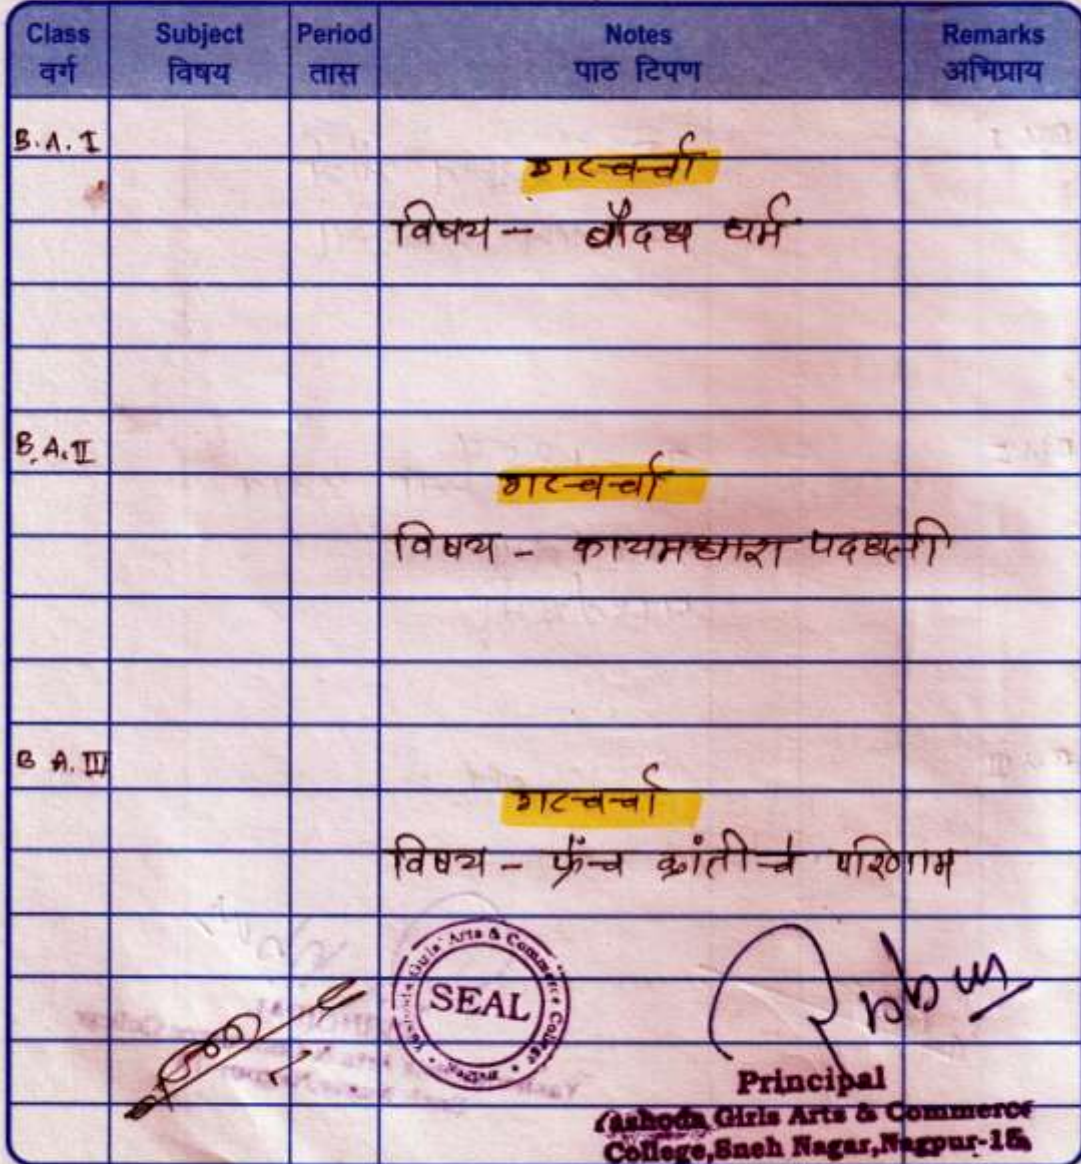 Class Subject Period Notes Remarks
वर्ग विषय तास पाठ टिपण अभिप्राय
B.A. I
गटचर्चा
विषय - बौदध धर्म
B.A. II
गटचर्चा
विषय - कायमधारा पदधती
B A. III
गटचर्चा
विषय - फ्रेंच क्रांतीचे परिणाम
Yashoda Girls' Arts & Commerce College
SEAL
Principal
Yashoda Girls Arts & Commerce
College, Sneh Nagar, Nagpur-15.